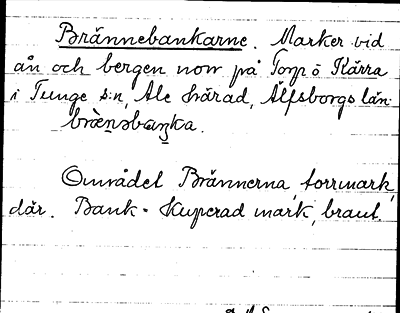 Brännebankarne. Marker vid
ån och bergen norr på Torp ö Kärra
i Tunge s:n, Ale härad, Älfsborgs län.
bræ̀nəbaŋka.
Området Brännerna, torrmark,
där. Bank = Kuperad mark, brant.